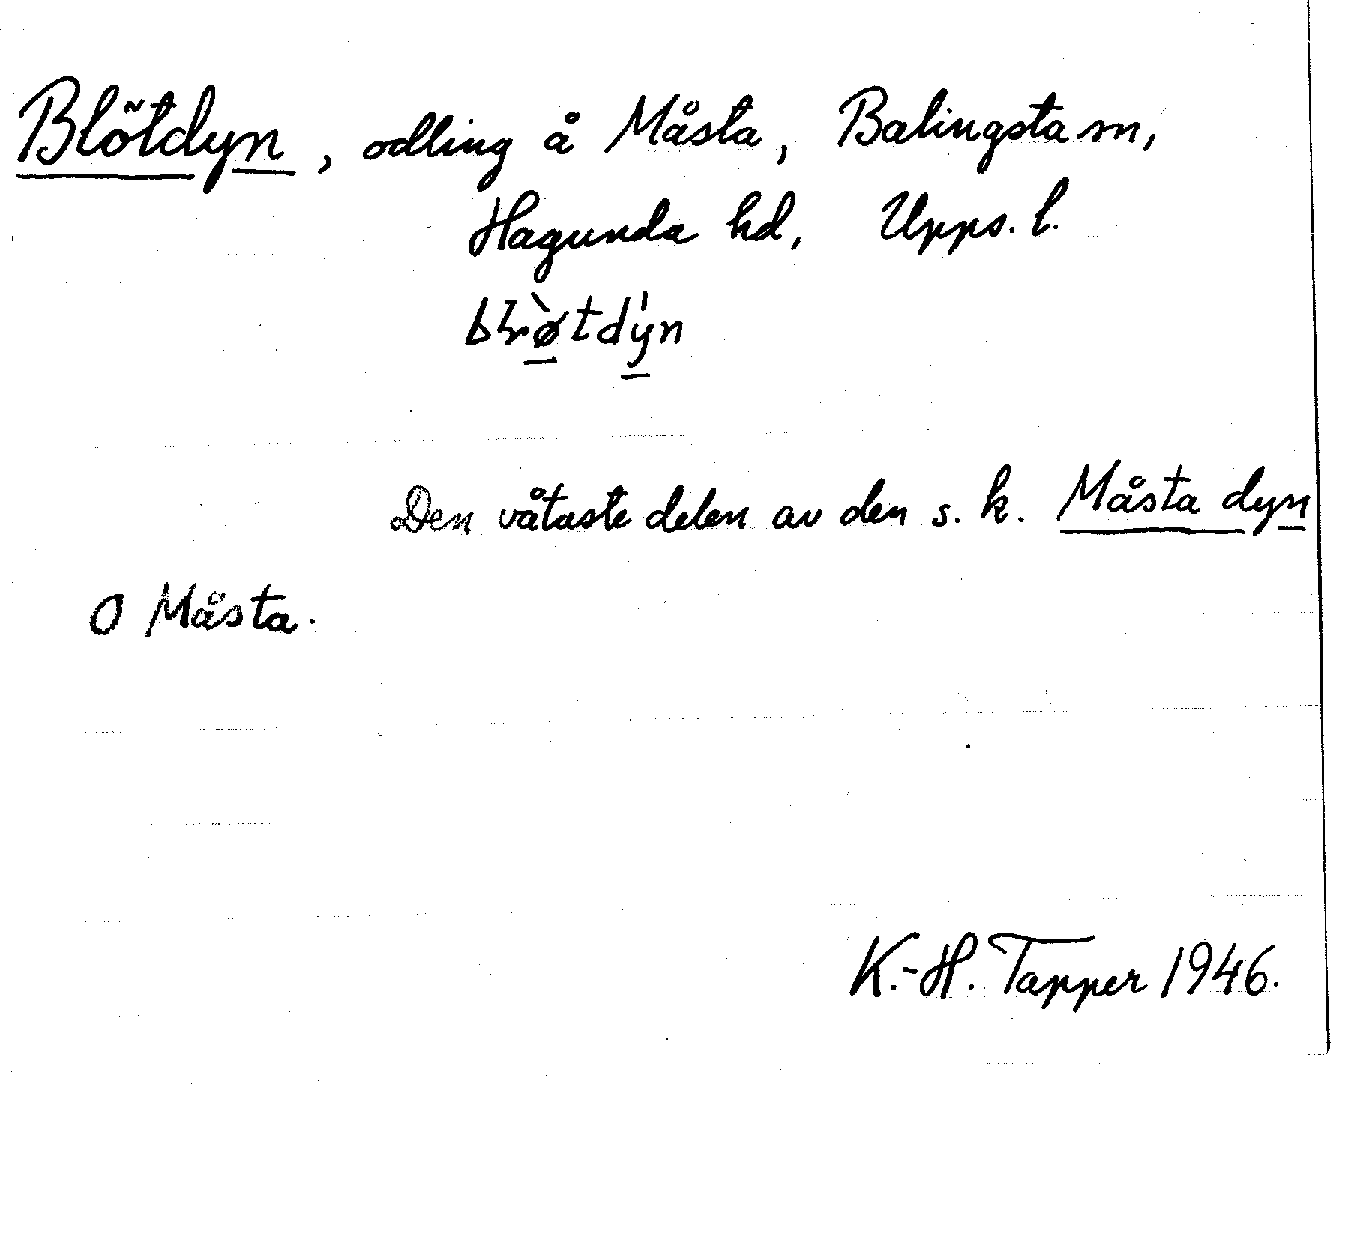 Blötdyn, odling å Måsta, Balingsta sn,
Hagunda hd, Upps. l.
bɫø̀tdýn
Den våtaste delen av den s. k. Måsta dyn
O Måsta.
K.-H. Tapper 1946.